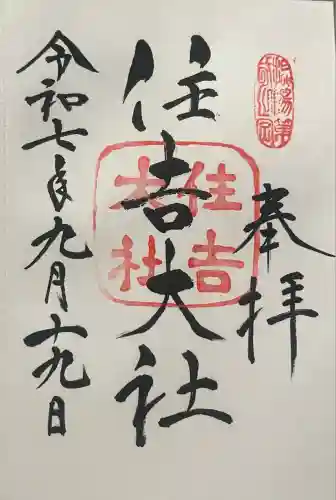 奉拝
住吉大社
住吉大社
令和七年九月十九日